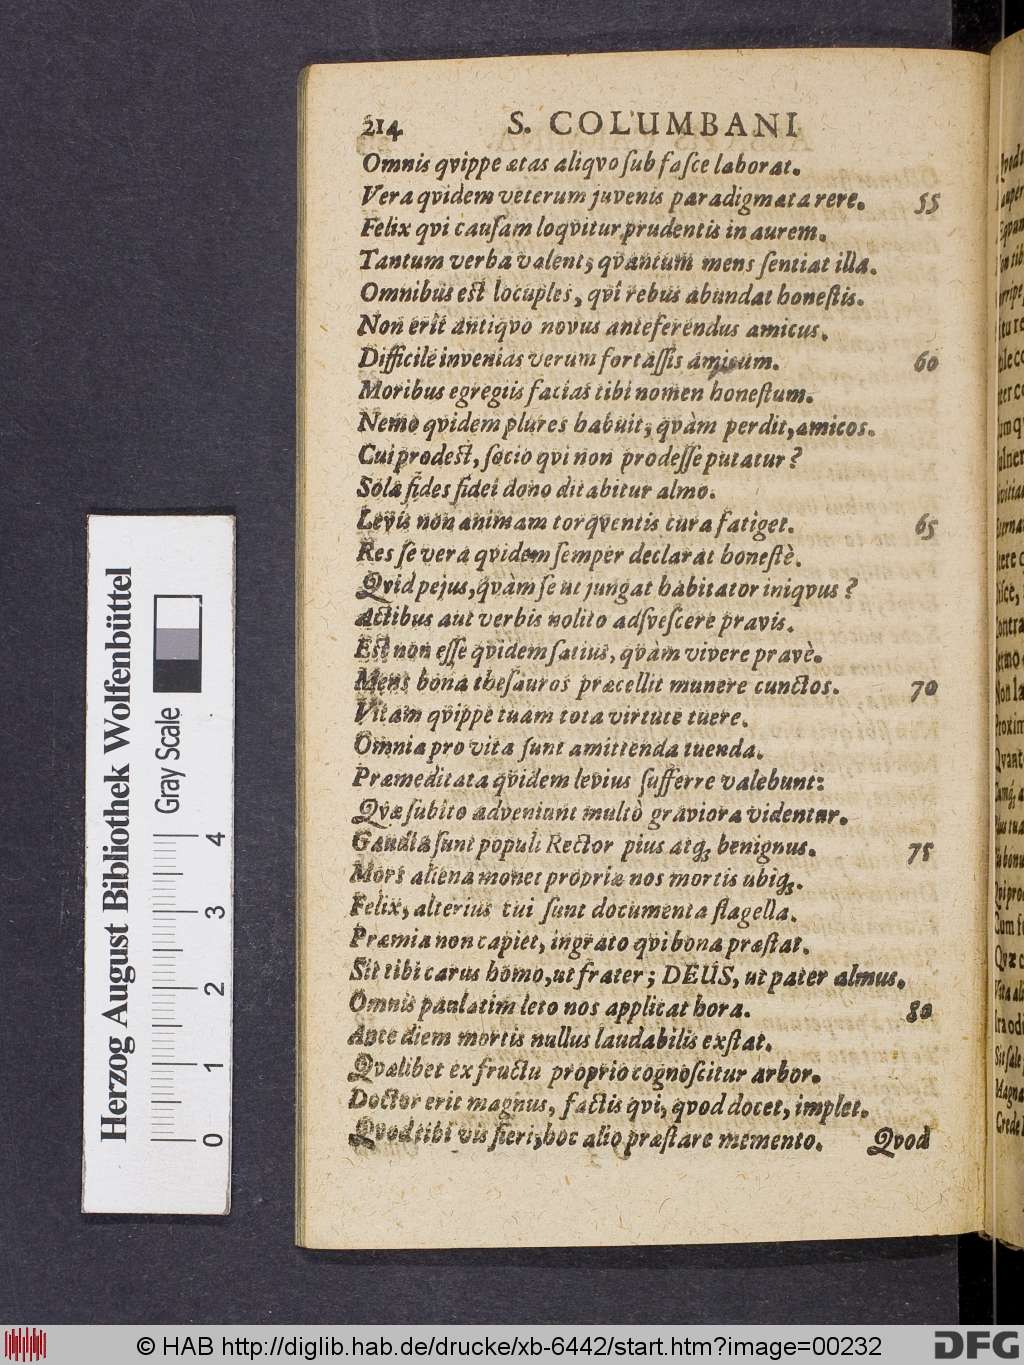 214 S. COLUMBANI
Omnis qvippe ætas aliqvo ſub faſce laborat.
Vera qvidem veterum juvenis paradigmata rere. 55
Felix qvi cauſam loqvitur prudentis in aurem.
Tantum verba valent; qvantum mens ſentiat illa.
Omnibus est locuples, qvi rebus abundat honeſtis.
Non erit antiqvo novus anteferendus amicus.
Difficile invenias verum fortaſſis amicum. 60
Moribus egregiis facias tibi nomen honeſtum.
Nemo qvidem plures habuit; qvàm perdit, amicos.
Cui prodest, ſocio qvi non prodeſſe putatur?
Sola fides fidei dono ditabitur almo.
Levis non animam torqventis cura fatiget. 65
Res ſe vera qvidem ſemper declarat honeſtè.
Qvid pejus, qvàm ſe ut jungat habitator iniqvus?
Actibus aut verbis nolito adſveſcere pravis.
Est non eſſe qvidem ſatius, qvàm vivere pravè.
Mens bona theſauros præcellit munere cunctos. 70
Vitam qvippe tuam tota virtute tuere.
Omnia pro vita ſunt amittenda tuenda.
Præmeditata qvidem levius ſufferre valebunt:
Qvæ ſubito adveniunt multò graviora videntur.
Gaudia ſunt populi Rector pius atq; benignus. 75
Mors aliena monet propriæ nos mortis ubiq;.
Felix, alterius cui ſunt documenta flagella.
Præmia non capiet, ingrato qvi bona præſtat.
Sit tibi carus homo, ut frater; DEUS, ut pater almus.
Omnis paulatim leto nos applicat hora. 80
Ante diem mortis nullus laudabilis exſtat.
Qvælibet ex fructu proprio cognoſcitur arbor.
Doctor erit magnus, factis qvi, qvod docet, implet.
Qvod tibi vis fieri, hoc alio præſtare memento. Qvod
Herzog August Bibliothek Wolfenbüttel
Gray Scale
0 1 2 3 4
© HAB http://diglib.hab.de/drucke/xb-6442/start.htm?image=00232
DFG